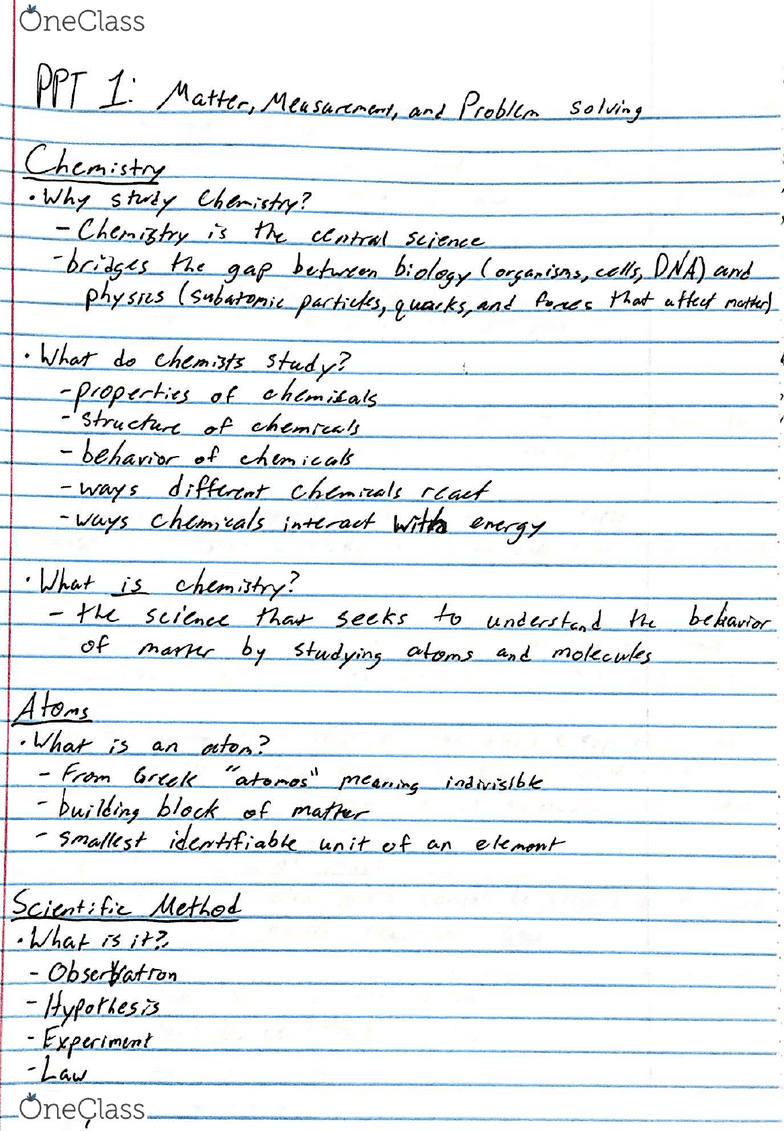 OneClass
PPT 1: Matter, Measurement, and Problem solving
Chemistry
• Why study Chemistry?
- Chemistry is the central science
- bridges the gap between biology (organisms, cells, DNA) and
physics (subatomic particles, quarks, and forces that affect matter)
• What do chemists study?
- properties of chemicals
- structure of chemicals
- behavior of chemicals
- ways different chemicals react
- ways chemicals interact with energy
• What is chemistry?
- the science that seeks to understand the behavior
of matter by studying atoms and molecules
Atoms
• What is an atom?
- From Greek "atomos" meaning indivisible
- building block of matter
- smallest identifiable unit of an element
Scientific Method
• What is it?
- Observation
- Hypothesis
- Experiment
- Law
OneClass